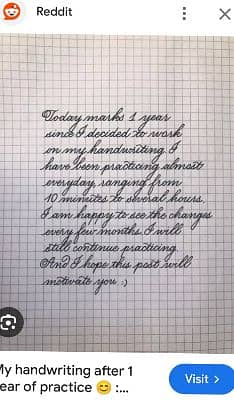 Reddit
Today marks 1 year
since I decided to work
on my handwriting. I
have been practicing almost
everyday, ranging from
10 minutes to several hours.
I am happy to see the changes
every few months. I will
still continue practicing.
And I hope this post will
motivate you :)
My handwriting after 1
ear of practice 😊 :...
Visit >